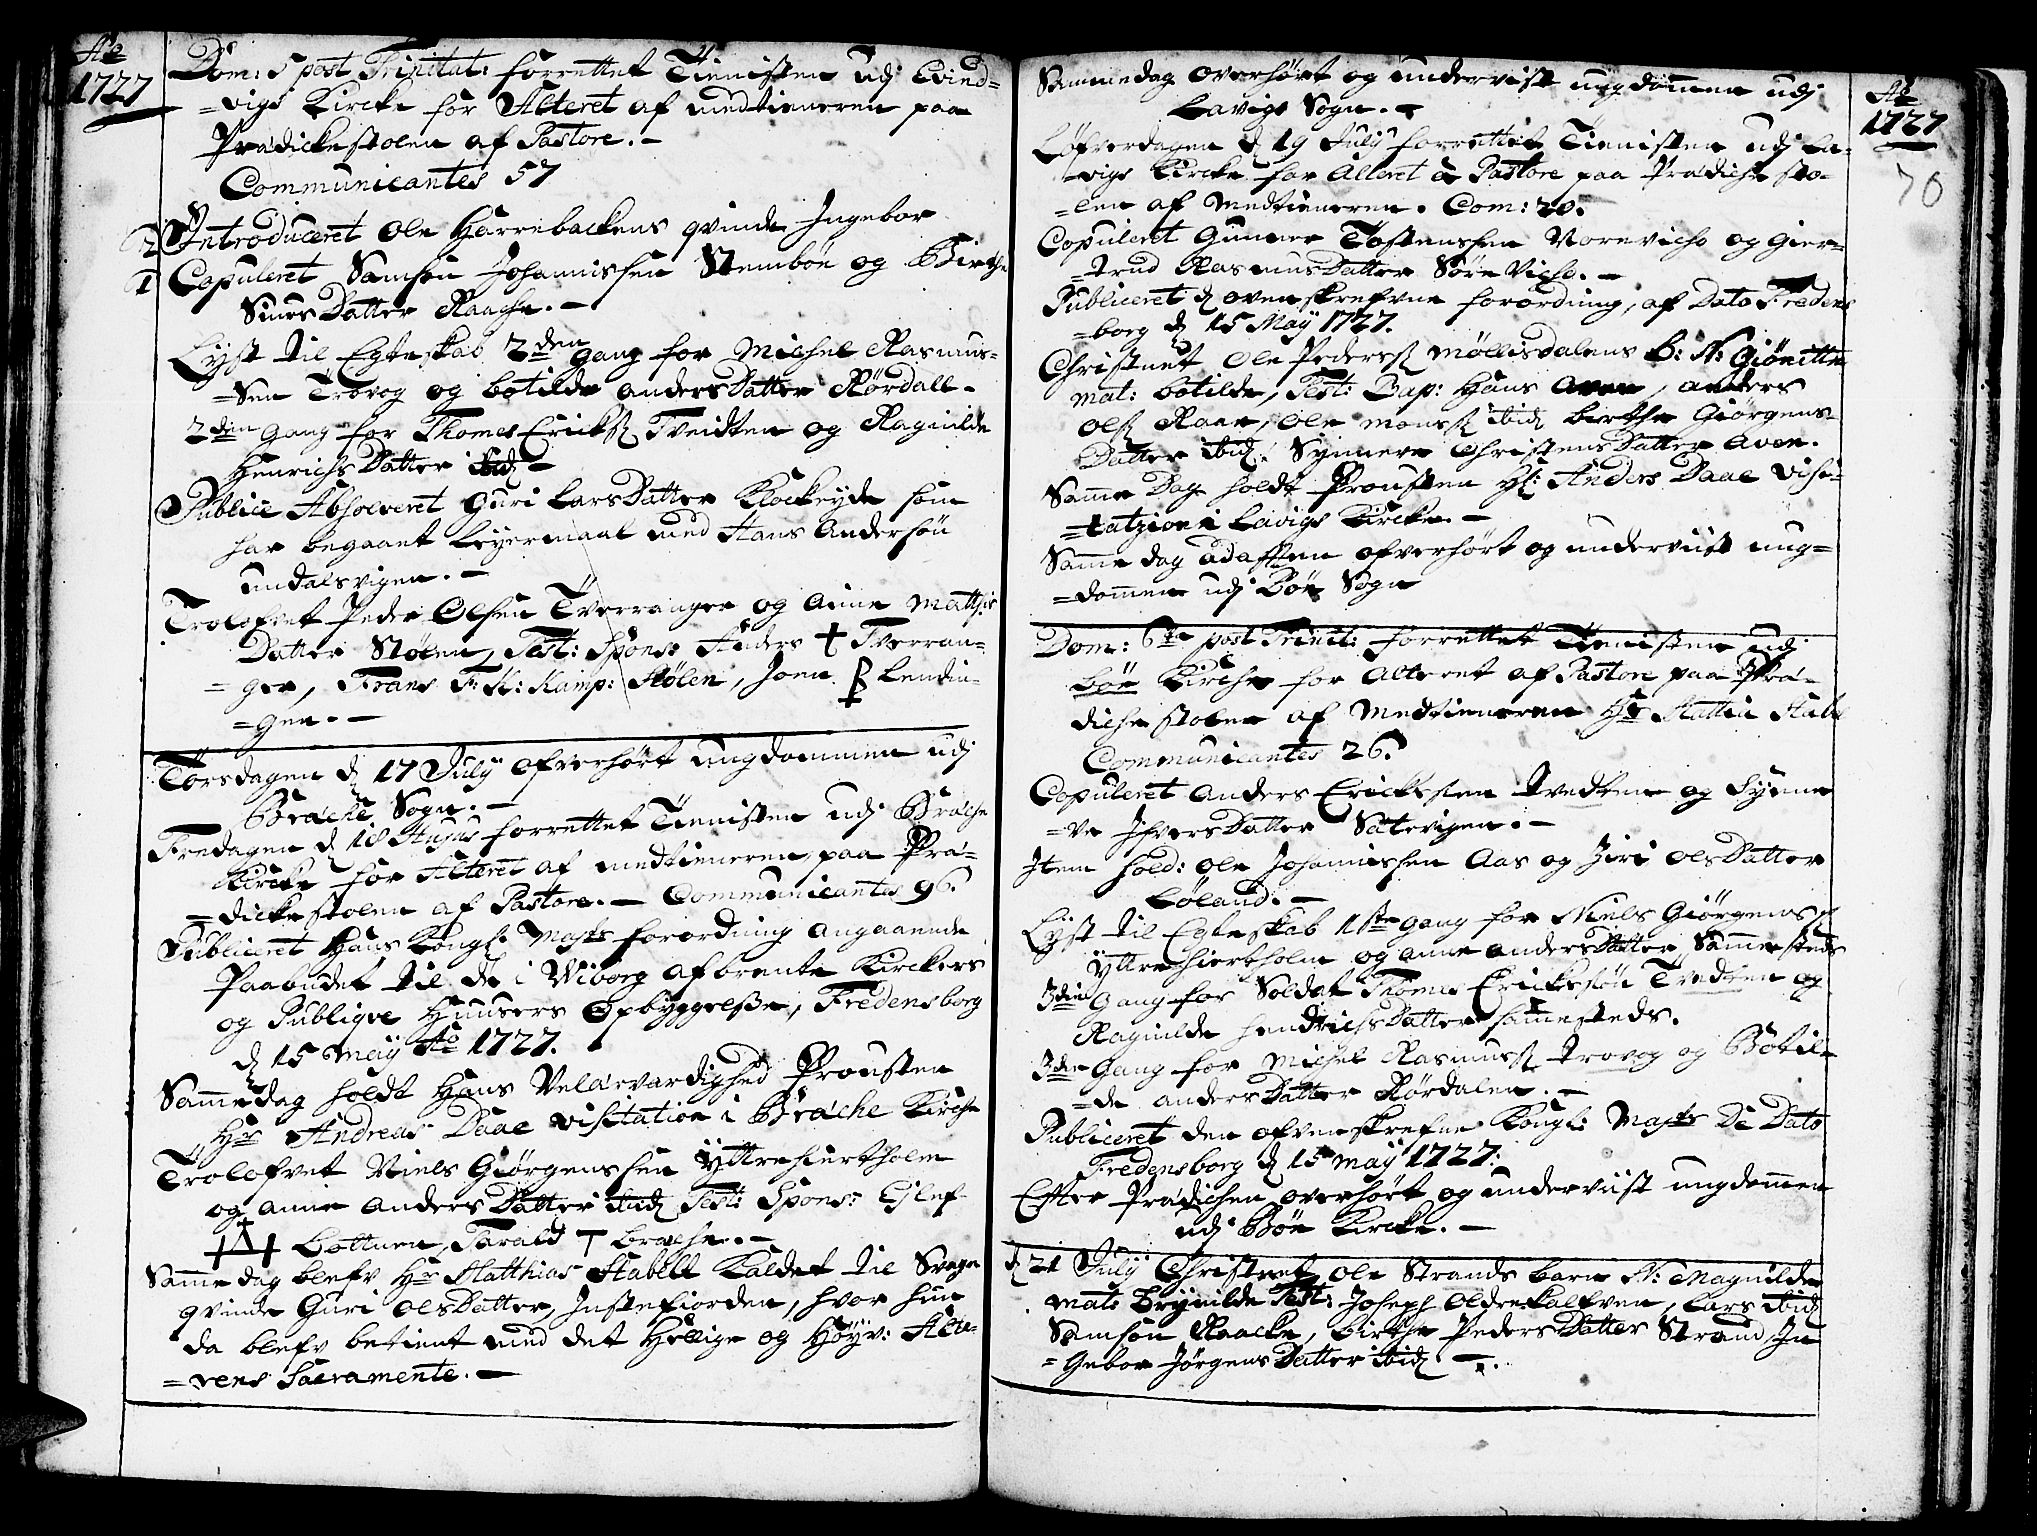 Aō
1727
Dom: 5 post Trinitat: forrettet Tienisten udj Evind-
=vigs Kircke for Alteret af medtieneren paa
Prædickestolen af Pastore. -
Communicantes 57
2 Introduceret Ole Harrebackens qvinde Ingebor
1 Copuleret Samson Johannisen Stensbøe og Birthe
Siurs Datter Raache. -
Lyst til Egteskab 2den gang for Michel Rasmus-
=sen Trovog og botilde anders Datter Rørdall-
2den gang for Thomes Ericks: Tveidten og Ragnilde
Henrichs Datter ibid -
Publice Absolveret Guri Lars Datter Klockeyde som
har begaaet leyermaal med Hans Andersøn
undalsvigen. -
Trolofvet Peder Olsen Tverranger og Anne Matthis
Datter Stølen, Test: Spons: Anders Tverran-
=ger, Frans Stølen, Joen Lendin-
=gen. -
Torsdagen d 17 July ofverhørt ungdommen udj
Bræche Sogn. -
Fredagen d 18 Hujus forrettet Tienisten udj Bræche
Kircke for Alteret af medtieneren, paa Præ-
=dickestolen af Pastore. - Communicantes 96.
Publiceret Hans Kongl: Mayts forordning angaaende
Paabudet til de i Wiborg afbrente Kirckers
og Publiqve Huusers Opbyggelsse, Fredensborg
d 15 May Aō 1727.
Samme dag holdt Hans Velærværdighed Prousten
Hr Andreas Daae Visitation i Bræche Kirche
Trolofvet Niels Giørgenssen Yttrehiertholm
og anne anders Datter ibid Test: Spons: Elef
bottnen, Tarald T bræche. -
Samme dag blefv Hr Matthias Stabell Kaldet til Svage
qvinde Guri ols Datter, Instefiorden, hvor hun
da blefv betient med det Hellige og Høyv: Alte-
=rens Sacramente. -
Samme dag overhørt og underviist ungdommen udj
Lavigs Sogn. -
Aō
1727
70
Løfverdagen d 19 July forrettet Tienisten udj La-
=vigs Kircke for Alteret a Pastore paa Prædiche sto-
=len af Medtieneren. Com: 20.
Copuleret Gunner Tostenssen Noreviche og Gier-
=trud Rasmus Datter Søreviche. -
Publiceret d ovenskrefvne forordning, af Dato Fredens
=borg d 15 May 1727.
Christnet Ole Peders: Møllisdalens B: N: Giønette
mat: botilde, Test: Bap: Hans Aven, anders
Ols: Raae, Ole monss: ibid birthe Giørgens-
Datter ibid: Synneve Christens Datter Aven.
Samme Dag holdt Prousten Hr: Anders Daae Visi-
=tatzion i Lavigs Kircke. -
Samme dag adafften ofverhørt og underviist ung-
=dommen udj Bøe Sogn
Dom: 6te post Trinit: forrettet Tienisten udj
bøe Kirche for Alteret af Pastore paa Præ-
diche stolen af Medtieneren Hr Mattia Stabel
Communicantes 26.
Copuleret Anders Erickssen tvedten og Synne-
=ve Ifvers Datter Satevigen. -
Item sold: Ole Johannissen Aas og Ziri ols Datter
Løland. -
Lyst til Egteskab 1ste gang for Niels Giørgens:
Yttre hiertholm og anne anders Datter Sammesteds
3die Gang for Soldat Thomes Erickesøn Tvedten og
Ragnilde hendrichs Datter samesteds.
3die Gang for Michel Rasmuss: trovog og Botil-
=de anders Datter Rørdalen. -
Publiceret den ofvenskrefne Kongl: Mayts De Dato
Fredensborg d 15 May 1727.
Effter Prædichen overhørt og underviist ungdommen
udj Bøe Kircke. -
d 21 July Christnet Ole Strands barn N: Magnilde
mat: Brynilde Test: Joseph Oldrekalfven, Lars ibid
Samson Raacke, birthe Peders Datter Strand, In
=gebor Jørgens Datter ibid -.